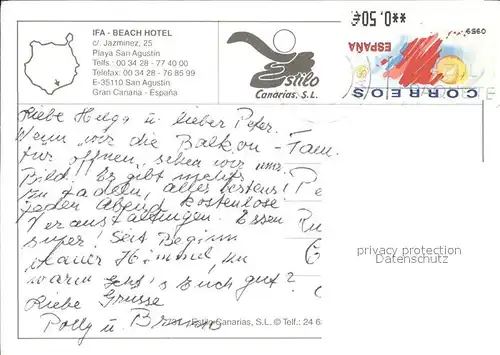 IFA - BEACH HOTEL
c/. Jazminez, 25
Playa San Agustín
Telfs.: 00 34 28 - 77 40 00
Telefax: 00 34 28 - 76 85 99
E-35110 San Agustín
Gran Canaria - España
Estilo
Canarias, S.L.
**0,50€
0959
ESPAÑA
CORREOS
Liebe Helga u. lieber Peter.
Wenn wir die Balkon-Taur
tür öffnen, sehen wir ums
Bild. Es gibt nichts
zu tadeln, alles bestens! Pe
jeden Abend kostenlose
Veranstaltungen. Essen Ru
super! Seit Beginn
blauer Himmel, zu
warm. Geht's Euch gut?
Liebe Grüsse
Polly u.
Estilo Canarias, S.L. © Telf.: 24 6
privacy protection
Datenschutz